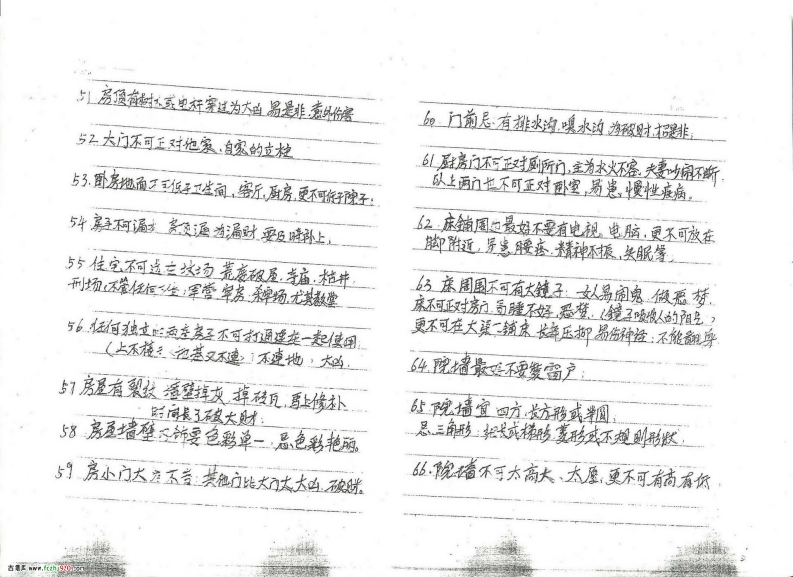 51 房顶有树或电杆穿过为大凶 易是非.意外伤害
52.大门不可正对他家.自家的立柱
53.卧房地面不可低于卫生间,客厅,厨房,更不可低于院子;
54 房子不可漏水 为漏财 要及时补上.
55 住宅不可 坟场 荒 破屋.寺庙.枯井
刑场.不管任何 军营 牢房.杀牛场.尤其教堂
56.任何独立的两座房子不可打通连在一起使用.
(上不 地基又不连)不连地,大凶.
57 房屋有裂纹 墙壁掉灰.掉砖瓦.马上修补
时间长了破大财.
58.房屋墙壁 要色彩单一.忌色彩艳丽.
59 房小门大 不吉.其他门比大门大.大凶.破财.
60 门前忌 有排水沟.嗅水沟 为破财 招是非;
61.厨房门不可正对厕所门,主为水火不容.夫妻吵闹不断.
以上两门也不可正对卧室,易患,慢性疾病.
62.床铺周边最好不要有电视.电脑,更不可放在
脚附近,易患腰疼.精神不振.失眠等.
63.床周围不可有大镜子:女人易闹鬼.做恶梦.
床不可正对房门.易睡不好,恶梦.(镜子吸收人的阳气)
更不可在大梁下铺床.长年压抑 易伤神经.不能翻身
64.院墙最好不要装窗户.
65.院墙宜 四方.长方形或半圆.
忌.三角形; 或梯形.菱形或不规则形状.
66.院墙不可太高大、太厚,更不可有高有低.
古籍库 www.fczhj920.com